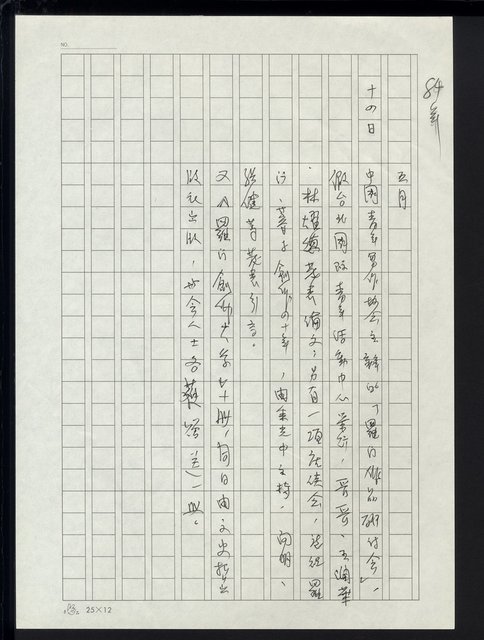 NO.
84年
五月
十四日
中國青年寫作協會主辦的「羅門作品研討會」,
假台北國際青年活動中心舉行,
林燿德發表論文;另有一項座談會,
行,蓉子創作四十年,由余光中主持,向明、
張健等發表引言。
又《羅門創作大系》十册,同日由文史哲出
版社出版,與會人士各獲贈送一
25×12